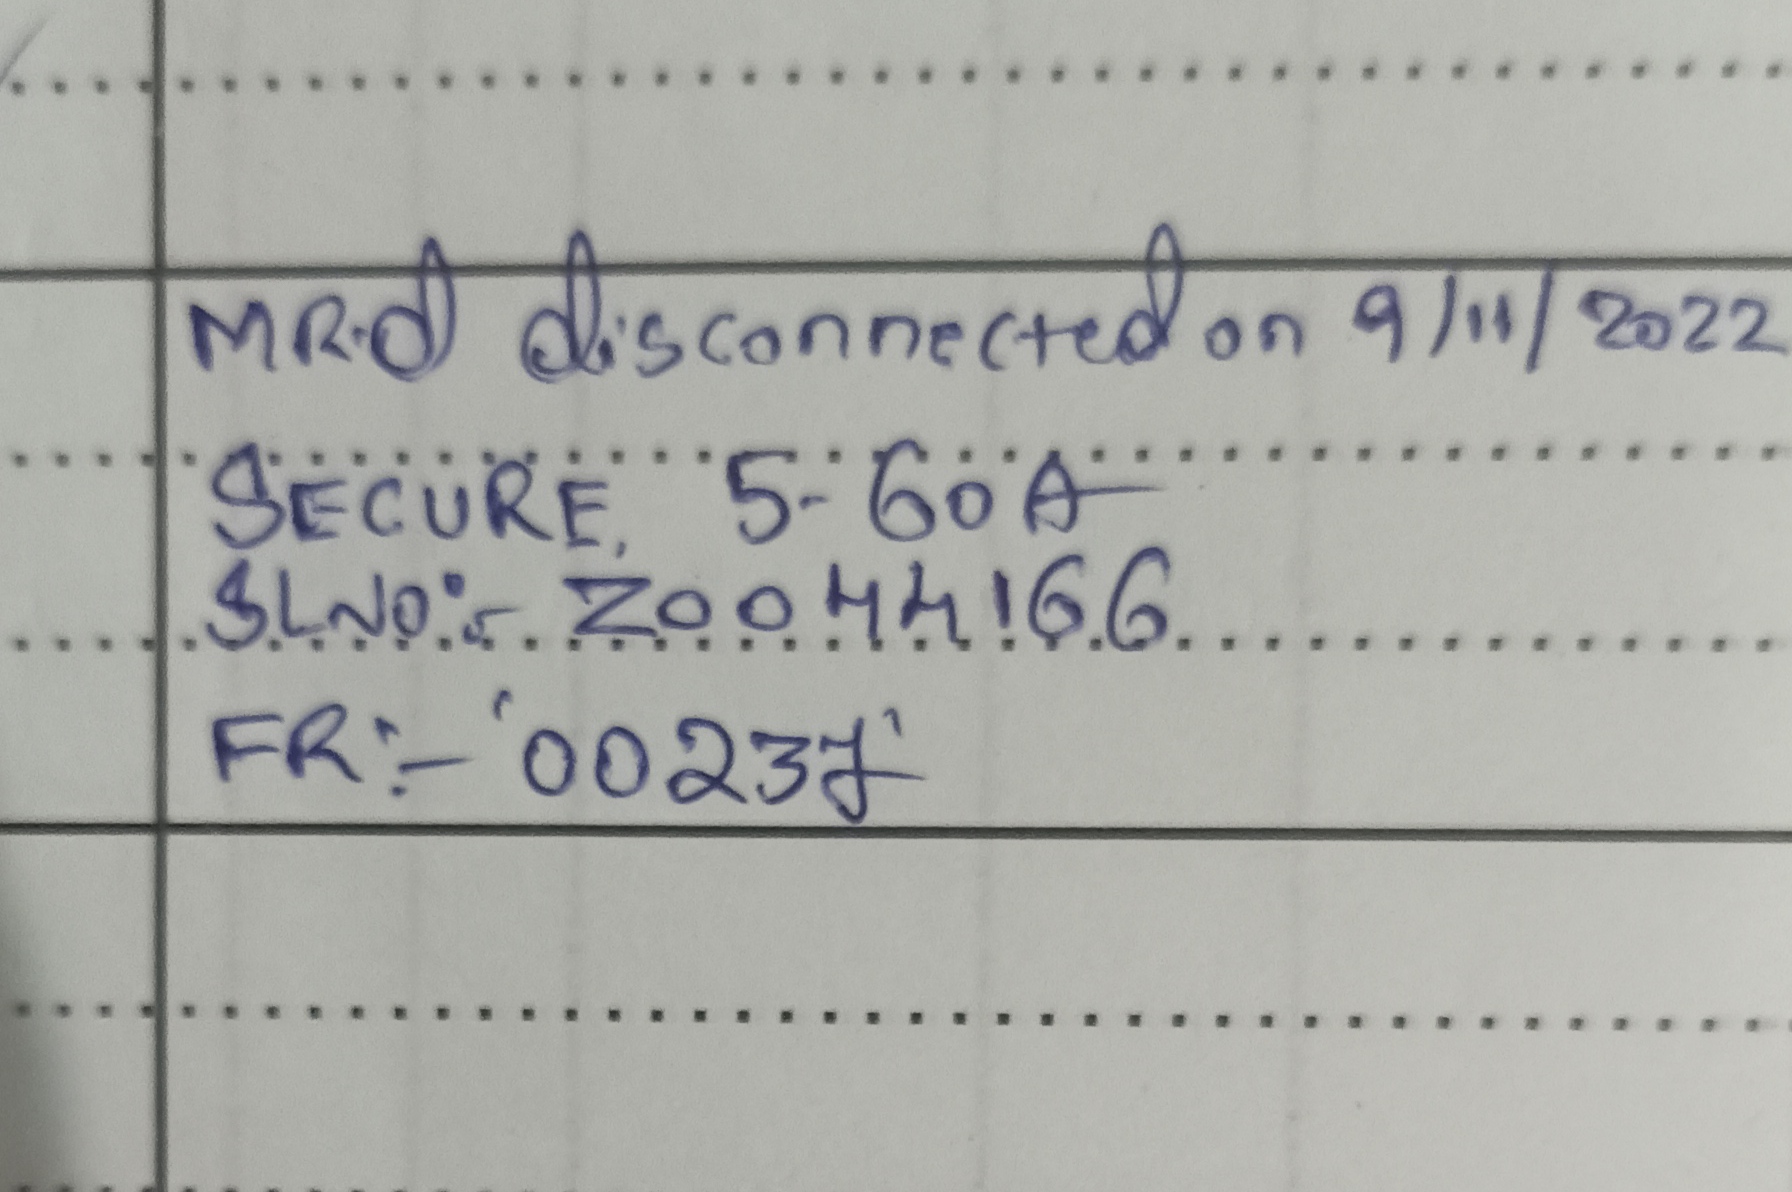 MR.d disconnected on 9/11/2022
SECURE, 5-60A
SLNO:- Z0044166
FR:- '00237'